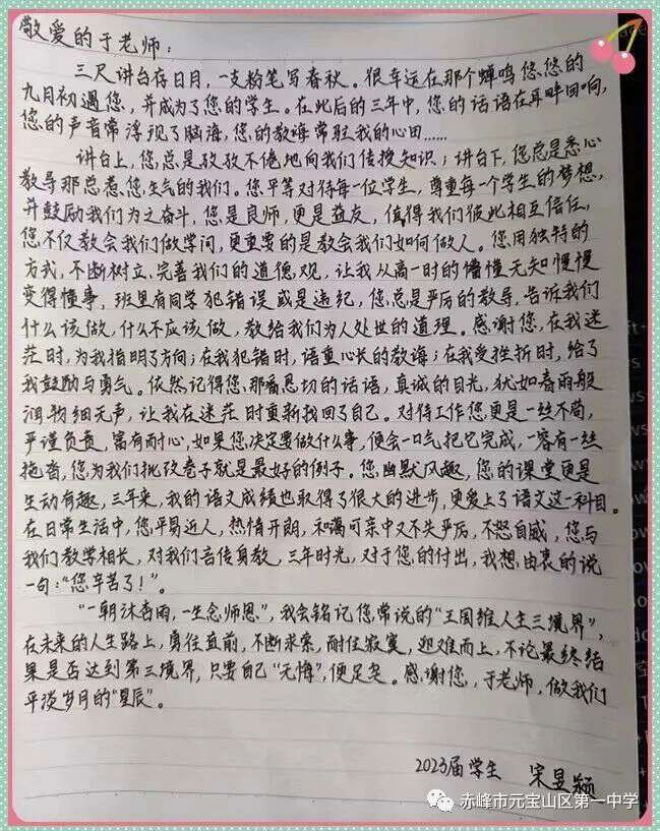 敬爱的于老师：
三尺讲台存日月，一支粉笔写春秋。很幸运在那个蝉鸣悠悠的
九月初遇您，并成为了您的学生。在此后的三年中，您的话语在耳畔回响，
您的声音常浮现了脑海，您的教诲常驻我的心田……
讲台上，您总是孜孜不倦地向我们传授知识；讲台下，您总是悉心
教导那总惹您生气的我们。您平等对待每一位学生，尊重每一个学生的梦想，
并鼓励我们为之奋斗，您是良师，更是益友，值得我们彼此相互信任，
您不仅教会我们做学问，更重要的是教会我们如何做人。您用独特的
方式，不断树立、完善我们的道德观，让我从高一时的懵懂无知慢慢
变得懂事，班里有同学犯错误或是违纪，您总是严厉的教导，告诉我们
什么该做，什么不应该做，教给我们为人处世的道理。感谢您，在我迷
茫时，为我指明了方向；在我犯错时，语重心长的教诲；在我受挫折时，给了
我鼓励与勇气。依然记得您那番恳切的话语，真诚的目光，犹如春雨般
润物细无声，让我在迷茫时重新找回了自己。对待工作您更是一丝不苟，
严谨负责，富有耐心，如果您决定要做什么事，便会一口气把它完成，不容有一丝
拖沓，您为我们批改卷子就是最好的例子。您幽默风趣，您的课堂更是
生动有趣，三年来，我的语文成绩也取得了很大的进步，更爱上了语文这一科目。
在日常生活中，您平易近人，热情开朗，和蔼可亲中又不失严厉，不怒自威，您与
我们教学相长，对我们言传身教，三年时光，对于您的付出，我想由衷的说
一句：“您辛苦了！”。
“一朝沐杏雨，一生念师恩”，我会铭记您常说的“王国维人生三境界”，
在未来的人生路上，勇往直前，不断求索，耐住寂寞，迎难而上，不论最终结
果是否达到第三境界，只要自己“无悔”，便足矣。感谢您，于老师，做我们
平淡岁月的“星辰”。
2023届学生 宋昱颖
赤峰市元宝山区第一中学